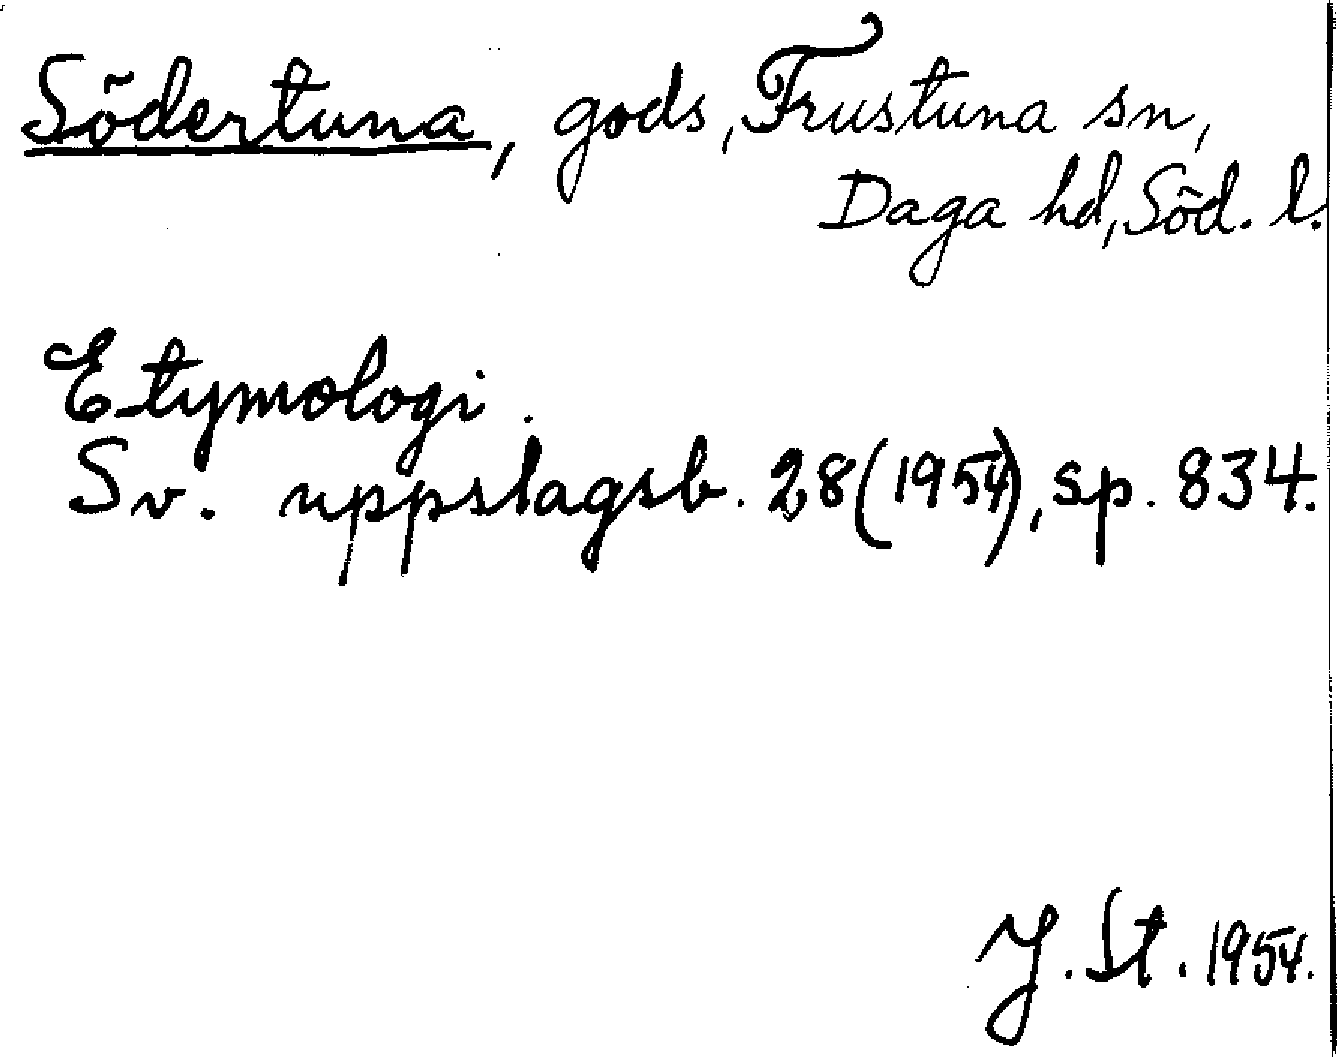 Södertuna, gods, Frustuna sn,
Daga hd, Söd. l.
Etymologi.
Sv. uppslagsb. 28(1954), sp. 834.
J. St. 1954.